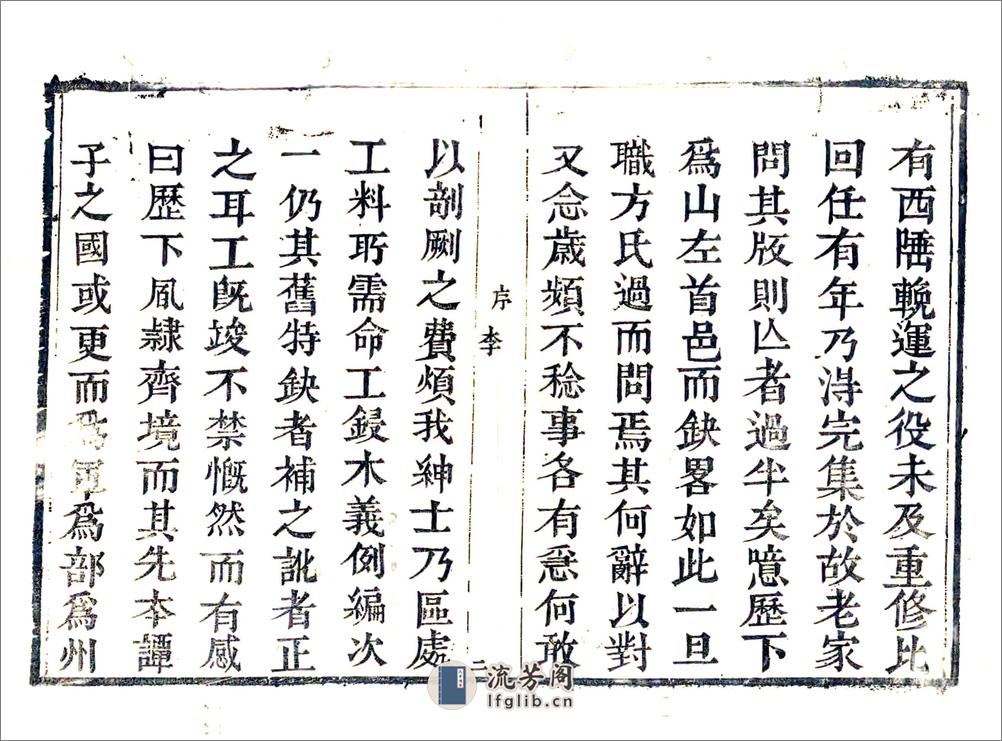 有西陲輓運之役未及重修比
回任有年乃淂完集於故老家
問其版則亾者過半矣噫歷下
爲山左首邑而缺畧如此一旦
職方氏過而問焉其何辭以對
又念歲頻不稔事各有急何敢
序 李
二
以剞劂之費煩我紳士乃區處
工料所需命工鋟木義例編次
一仍其舊特缺者補之訛者正
之耳工旣竣不禁慨然而有感
曰歷下夙隷齊境而其先本譚
子之國或更而爲軍爲部爲州
流芳阁
lfglib.cn